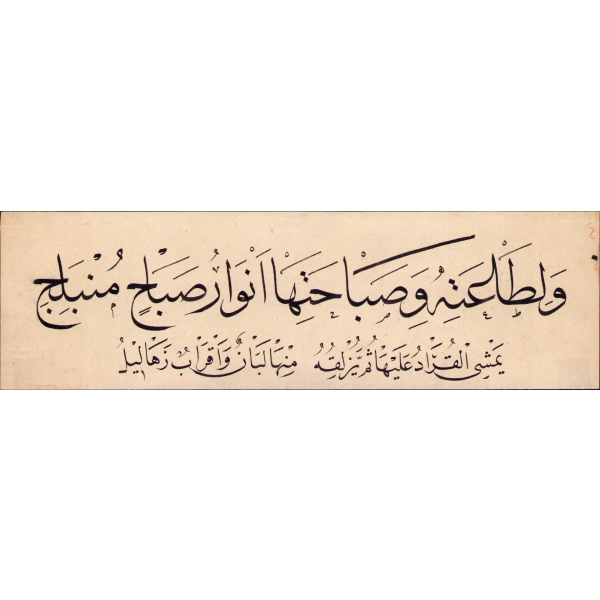 وَلِطَلْعَتِهِ وَصَبَاحَتِهَا اَنْوَارُ صَبَاحٍ مُنْبَلِجٍ
يَمْشِى الْقُرَادُ عَلَيْهَا ثُمَّ يُزْلِقُهُ مِنْهَا لَبَانٌ وَاَقْرَابٌ زَهَالِيلُ